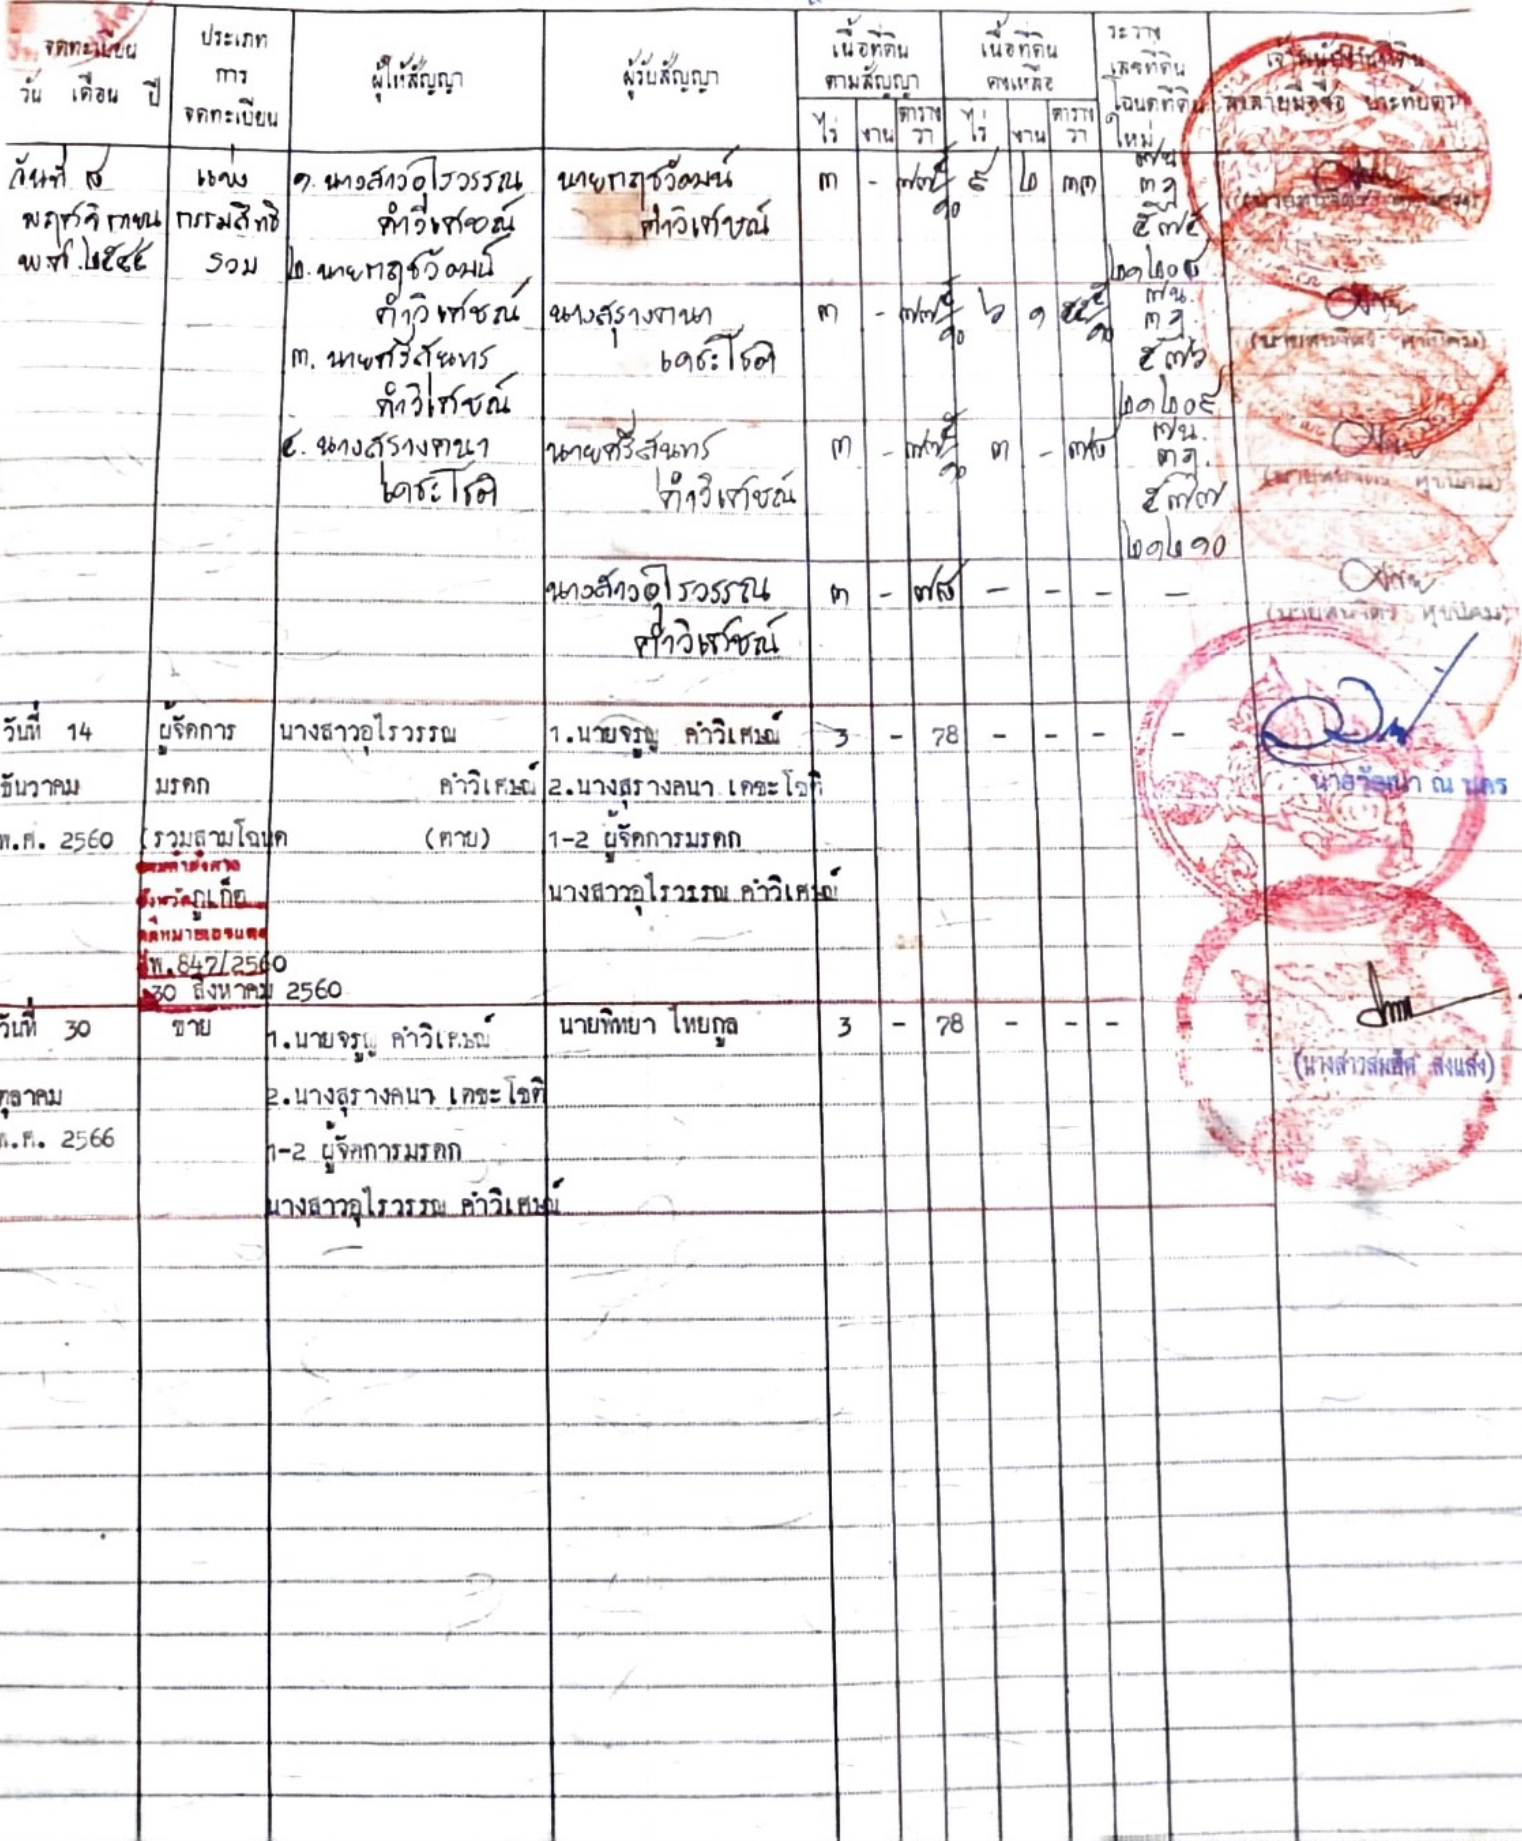 จดทะเบียน
วัน เดือน ปี
ประเภท
การ
จดทะเบียน
ผู้ให้สัญญา
ผู้รับสัญญา
เนื้อที่ดิน
ตามสัญญา
ไร่ งาน ตาราง
วา
เนื้อที่ดิน
คงเหลือ
ไร่ งาน ตาราง
วา
ระวาง
เลขที่ดิน
โฉนดที่ดิน
ใหม่
เจ้าพนักงานที่ดิน
ลงลายมือชื่อ ประทับตรา
วันที่ ๘
พฤศจิกายน
แบ่ง
กรรมสิทธิ
รวม
๑. นางสาวอุไรวรรณ
คำวิเศษณ์
๒. นายกฤชวัฒน์
คำวิเศษณ์
๓. นายศรีสุนทร
คำวิเศษณ์
๔. นางสุรางคนา
เดชะโชติ
นายกฤชวัฒน์
คำวิเศษณ์
๓ - ๙ ๒ ๓๓
๒๑๒๐๘
นางสุรางคนา
เดชะโชติ
๓ - ๖ ๑
๒๑๒๐๙
นายศรีสุนทร
คำวิเศษณ์
๓ - ๓ - ๗๘
๒๑๒๑๐
นางสาวอุไรวรรณ
คำวิเศษณ์
๓ - ๗๘ - - - -
วันที่ 14
ธันวาคม
พ.ศ. 2560
ผู้จัดการ
มรดก
(รวมสามโฉนด
ตามคำสั่งศาล
จังหวัดภูเก็ต
คดีหมายเลขแดง
พ.847/2560
30 สิงหาคม 2560
นางสาวอุไรวรรณ
คำวิเศษณ์
(ตาย)
1.นายจรูญ คำวิเศษณ์
2.นางสุรางคนา เดชะโชติ
1-2 ผู้จัดการมรดก
นางสาวอุไรวรรณ คำวิเศษณ์
3 - 78 - - - -
นายวัฒนา ณ นคร
วันที่ 30
ตุลาคม
พ.ศ. 2566
ขาย
1.นายจรูญ คำวิเศษณ์
2.นางสุรางคนา เดชะโชติ
1-2 ผู้จัดการมรดก
นางสาวอุไรวรรณ คำวิเศษณ์
นายพิทยา ไทยกูล
3 - 78 - - -